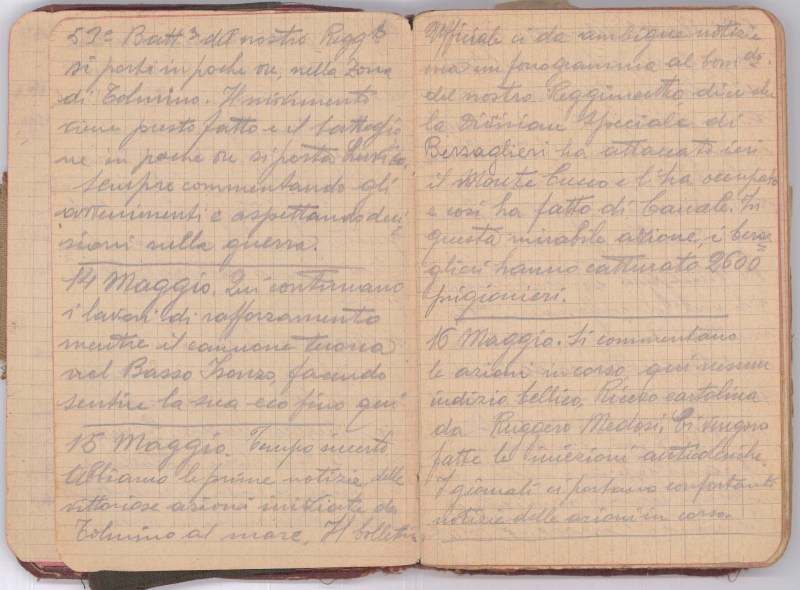 53º Battº del nostro Reggto
si porti in poche ore, nella zona
di Tolmino. Il movimento
viene presto fatto e il battaglio
ne in poche ore si porta
sempre commentando gli
avvenimenti e aspettando deci
sioni sulla guerra.
14 Maggio. Qui continuano
i lavori di rafforzamento
mentre il cannone tuona
nel Basso Isonzo, facendo
sentire la sua eco fino qui
15 Maggio. Tempo incerto
Abbiamo le prime notizie delle
vittoriose azioni iniziate da
Tolmino al mare. Il bolletin
Ufficiale ci da ambigue notizie
ma un fonogramma al Comdo.
del nostro Reggimento dice che
la Division Speciale di
Bersaglieri ha attaccato ieri
il Monte Cucco e l'ha occupato
e così ha fatto di Canale. In
questa mirabile azione, i bersa
glieri hanno catturato 2600
prigionieri.
16 Maggio. Si commentano
le azioni in corso, qui nessun
indizio bellico. Ricevo cartolina
da Ruggero Medosi. Ci vengono
fatte le iniezioni anticoleriche.
I giornali ci portano confortanti
notizie delle azioni in corso.